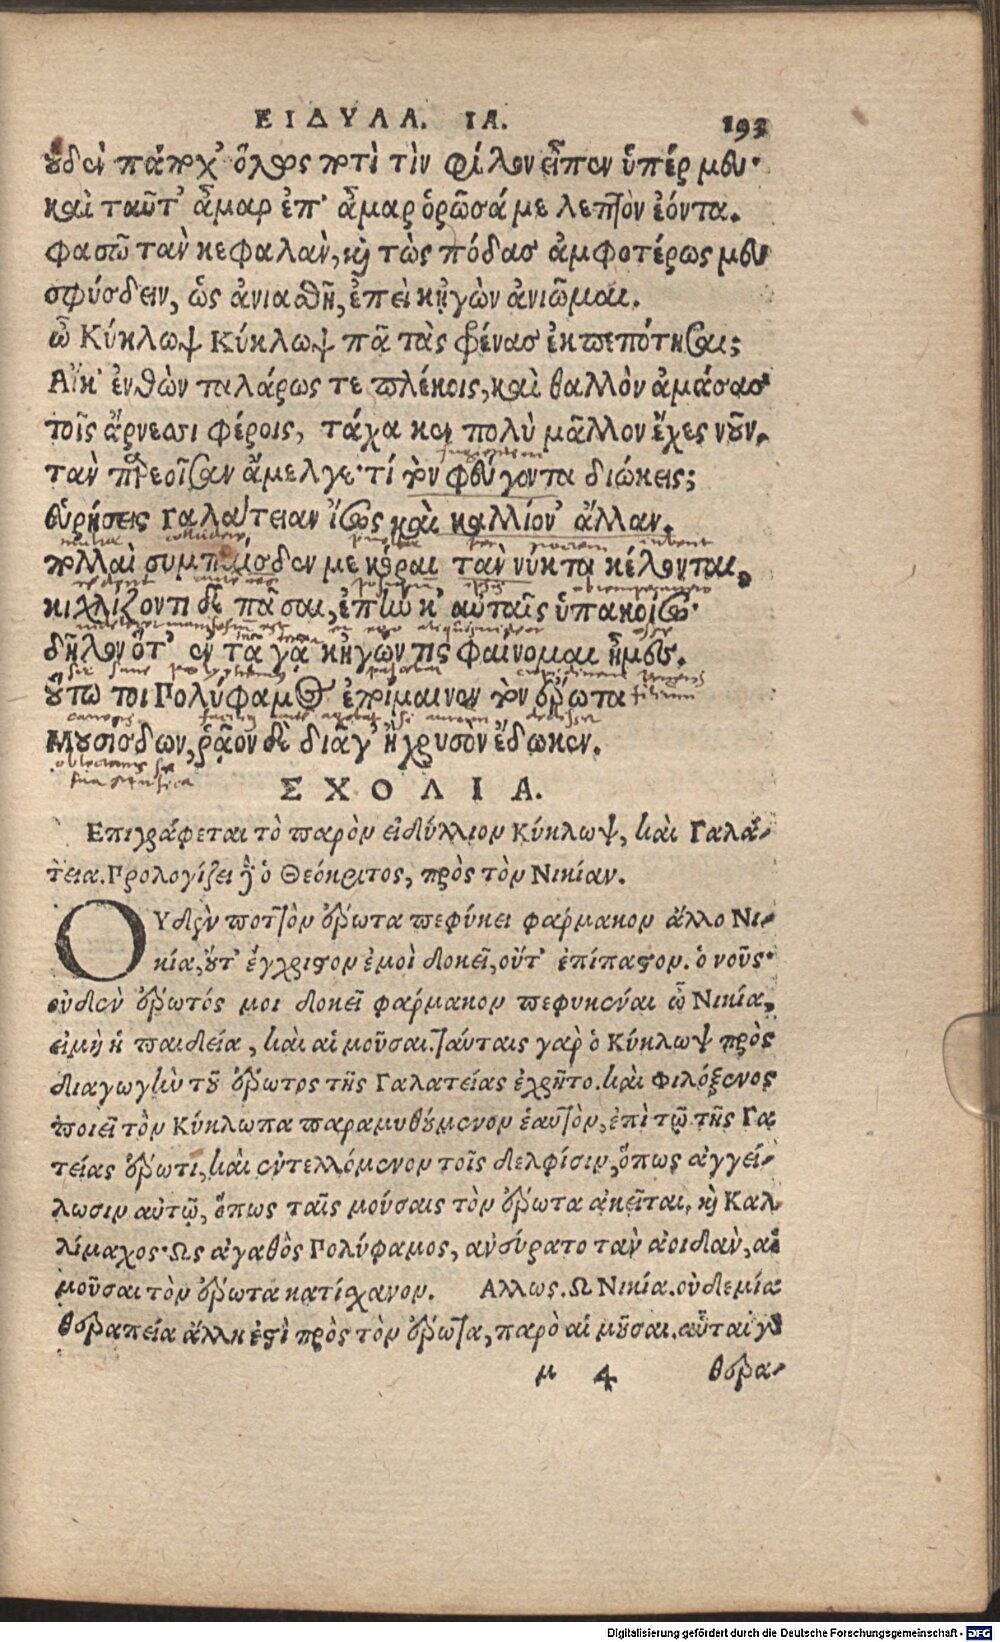 ΕΙΔΥΛΛ. ΙΑ. 193
οὐδὲν πάποχ' ὅλως ποτὶ τὶν φίλον εἶπεν ὑπέρ μου·
καὶ ταῦτ' ἆμαρ ἐπ' ἆμαρ ὁρῶσά με λεπτὸν ἐόντα.
φασῶ τὰν κεφαλὰν, καὶ τὼς πόδας ἀμφοτέρως μου
σφύσδειν, ὡς ἀνιαθῇ, ἐπεὶ κἠγὼν ἀνιῶμαι.
ὦ Κύκλωψ Κύκλωψ πᾶ τὰς φρένας ἐκπεπότησαι;
Αἴκ' ἐνθὼν ταλάρως τε πλέκοις, καὶ θαλλὸν ἀμάσας
τοῖς ἄρνεσσι φέροις, τάχα κεν πολὺ μᾶλλον ἔχες νοῦν.
τὰν παρεοῖσαν ἄμελγε· τί τὸν φεύγοντα διώκεις;
εὑρήσεις Γαλάτειαν ἴσως καὶ καλλίον' ἄλλαν.
πολλαὶ συμπαίσδεν με κόραι τὰν νύκτα κέλονται,
κιχλίζοντι δὲ πᾶσαι, ἐπὴν κ' αὐταῖς ὑπακούσω·
δῆλον ὅτ' ἐν τᾷ γᾷ κἠγών τις φαίνομαι ἦμες.
οὕτω τοι Πολύφαμος ἐποίμαινεν τὸν ἔρωτα
Μουσίσδων, ῥᾷον δὲ διᾶγ' ἢ χρυσὸν ἔδωκεν.
ΣΧΟΛΙΑ.
Επιγράφεται τὸ παρὸν εἰδύλλιον Κύκλωψ, καὶ Γαλά-
τεια. Προλογίζει δὲ ὁ Θεόκριτος, πρὸς τὸν Νικίαν.
ΟΥδὲν ποττὸν ἔρωτα πεφύκει φάρμακον ἄλλο Νι-
κία, οὔτ' ἔγχριστον ἐμοὶ δοκεῖ, οὔτ' ἐπίπαστον. ὁ νοῦς·
οὐδὲν ἔρωτός μοι δοκεῖ φάρμακον πεφυκέναι ὦ Νικία,
εἰμὴ ἡ παιδεία, καὶ αἱ μοῦσαι. ταύταις γὰρ ὁ Κύκλωψ πρὸς
διαγωγὴν τοῦ ἔρωτος τῆς Γαλατείας ἐχρῆτο. καὶ Φιλόξενος
ποιεῖ τὸν Κύκλωπα παραμυθούμενον ἑαυτὸν, ἐπὶ τῷ τῆς Γα
τείας ἔρωτι, καὶ ἐντελλόμενον τοῖς δελφίσιν, ὅπως ἀγγεί-
λωσιν αὐτῷ, ὅπως ταῖς μούσαις τὸν ἔρωτα ἀκεῖται. καὶ Καλ
λίμαχος· Ὡς ἀγαθὸς Πολύφαμος, ἀνσύρατο τὰν ἀοιδὰν, αἱ
μοῦσαι τὸν ἔρωτα κατίσχανον. Αλλως. Ω Νικία. οὐδεμία
θεραπεία ἄλλη ἐστὶ πρὸς τὸν ἔρωτα, παρὸ αἱ μοῦσαι. αὗται γὰρ
μ 4 θερα-